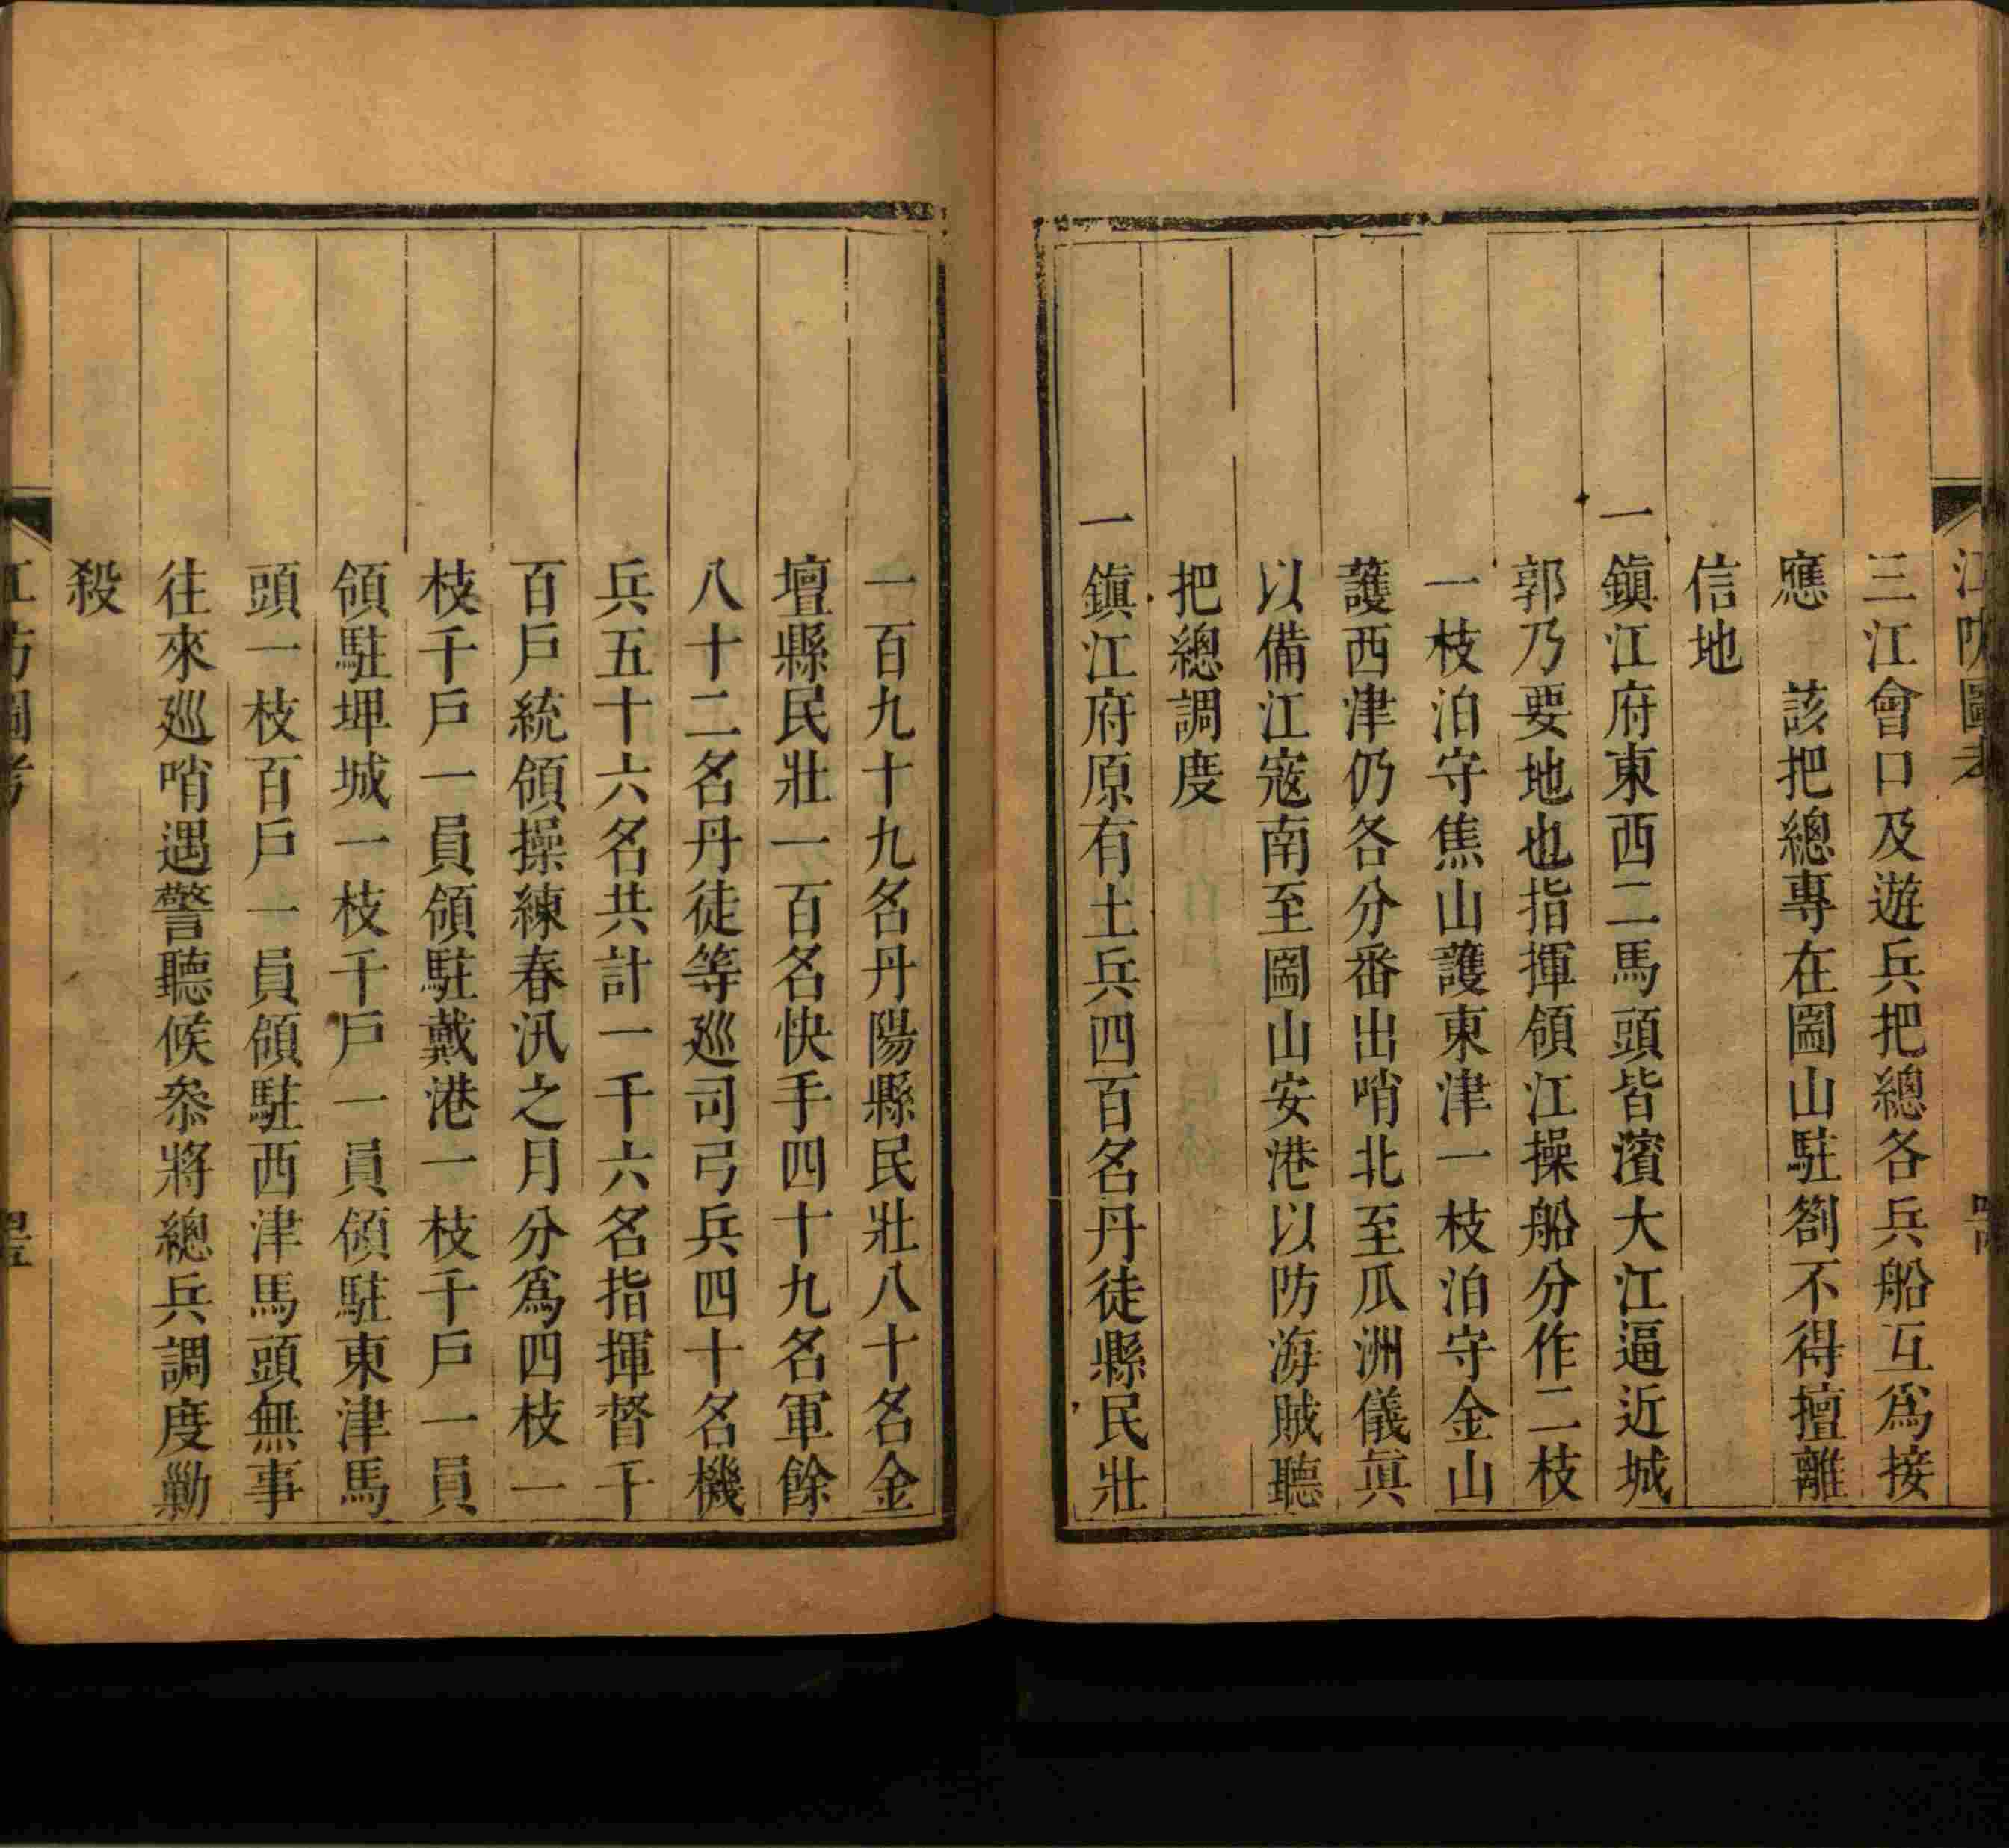 江防圖考
三江會口及遊兵把總各兵船互爲接
應　該把總專在圌山駐劄不得擅離
信地
一鎭江府東西二馬頭皆濱大江逼近城
郭乃要地也指揮領江操船分作二枝
一枝泊守焦山護東津一枝泊守金山
護西津仍各分番出哨北至瓜洲儀眞
以備江寇南至圌山安港以防海賊聽
把總調度
一鎭江府原有土兵四百名丹徒縣民壯
一百九十九名丹陽縣民壯八十名金
壇縣民壯一百名快手四十九名軍餘
八十二名丹徒等巡司弓兵四十名機
兵五十六名共計一千六名指揮督千
百戶統領操練春汛之月分爲四枝一
枝千戶一員領駐戴港一枝千戶一員
領駐埤城一枝千戶一員領駐東津馬
頭一枝百戶一員領駐西津馬頭無事
往來廵哨遇警聽候叅將總兵調度勦
殺
江防圖考